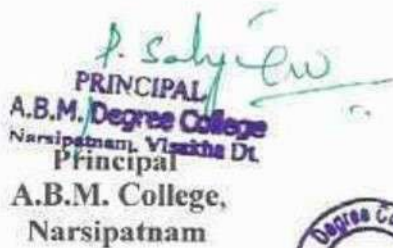 PRINCIPAL
A.B.M. Degree College
Narsipatnam, Visakha Dt.
Principal
A.B.M. College,
Narsipatnam
Degree Co